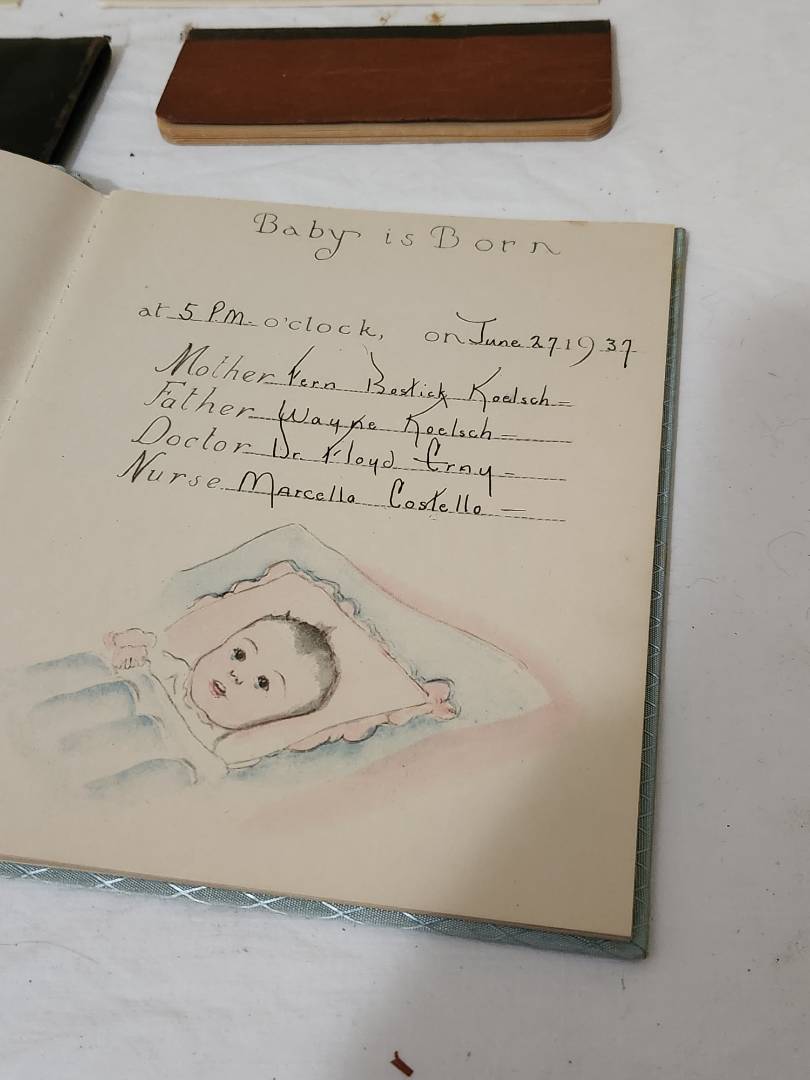 Baby is Born
at 5 P.M. o'clock, on June 27 1937
Mother Vern Bostick Koelsch
Father Wayne Koelsch
Doctor Dr. Floyd
Nurse Marcella Costello